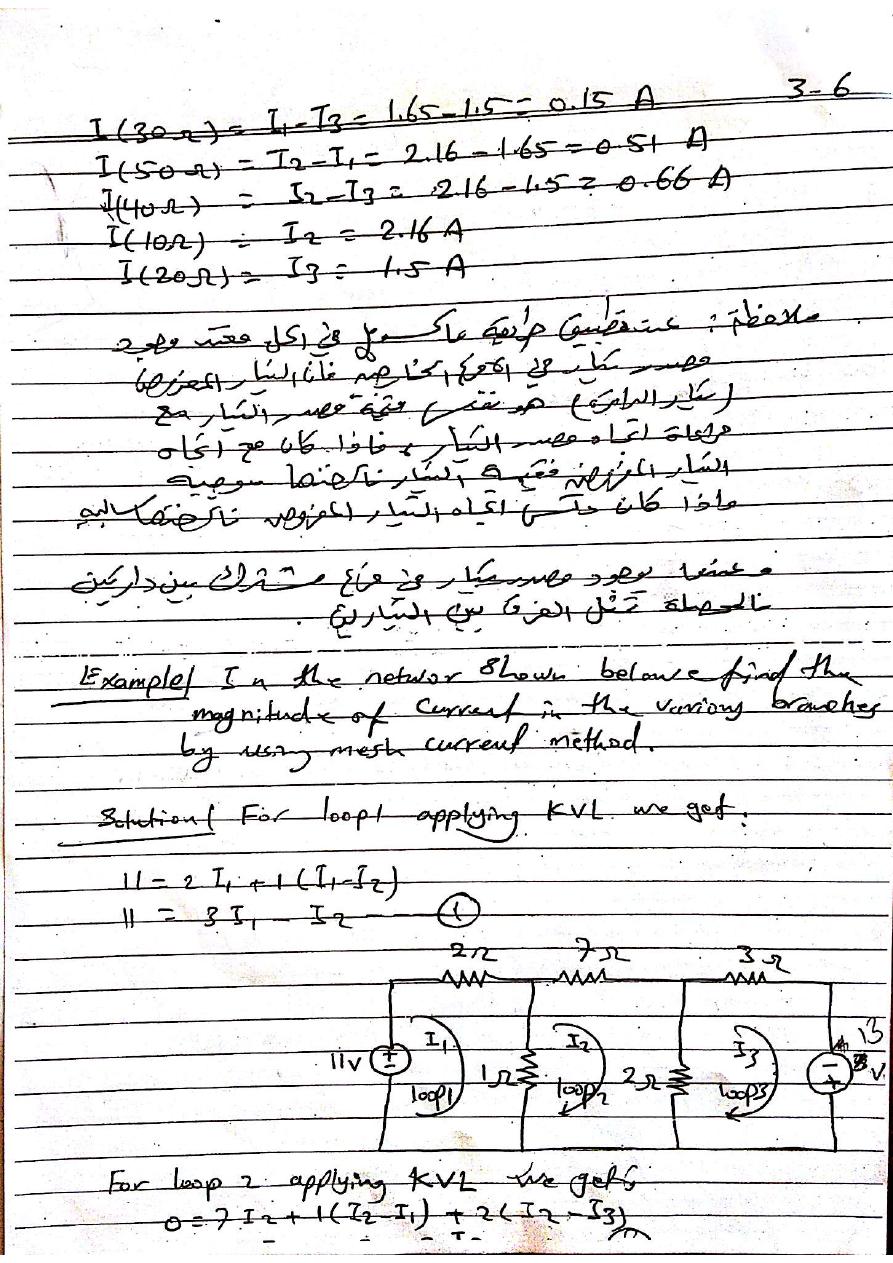 3-6
I(30Ω) = I1-I3 = 1.65-1.5 = 0.15 A
I(50Ω) = I2-I1 = 2.16-1.65 = 0.51 A
I(40Ω) = I2-I3 = 2.16-1.5 = 0.66 A
I(10Ω) = I2 = 2.16 A
I(20Ω) = I3 = 1.5 A
ملاحظة : عند تطبيق طريقة ماكسويل في كل وعند وجود
مصدر تيار في الافرع الخارجية فان التيار المفروض
(تيار الدائرة) هو نفس قيمة مصدر التيار مع
مراعاة اتجاه مصدر التيار ، فاذا كان مع اتجاه
التيار المفروض فقيمة التيار ناخذها موجبة
واذا كان عكس اتجاه التيار المفروض ناخذها سالبه
وعندما يوجد مصدر تيار في فرع مشترك بين دائرتين
فالمحصلة تمثل الفرق بين التيارين .
Example/ In the networ shown belowe find the
magnitude of current in the various branches
by using mesh current method.
Solution/ For loop1 applying KVL we get:
11 = 2 I1 + 1(I1-I2)
11 = 3 I1 - I2 ①
2Ω 7Ω 3Ω
11v I1 loop1 1Ω I2 loop2 2Ω I3 loop3 13 v.
For loop 2 applying KVL we get:
0 = 7 I2 + 1(I2-I1) + 2(I2-I3)